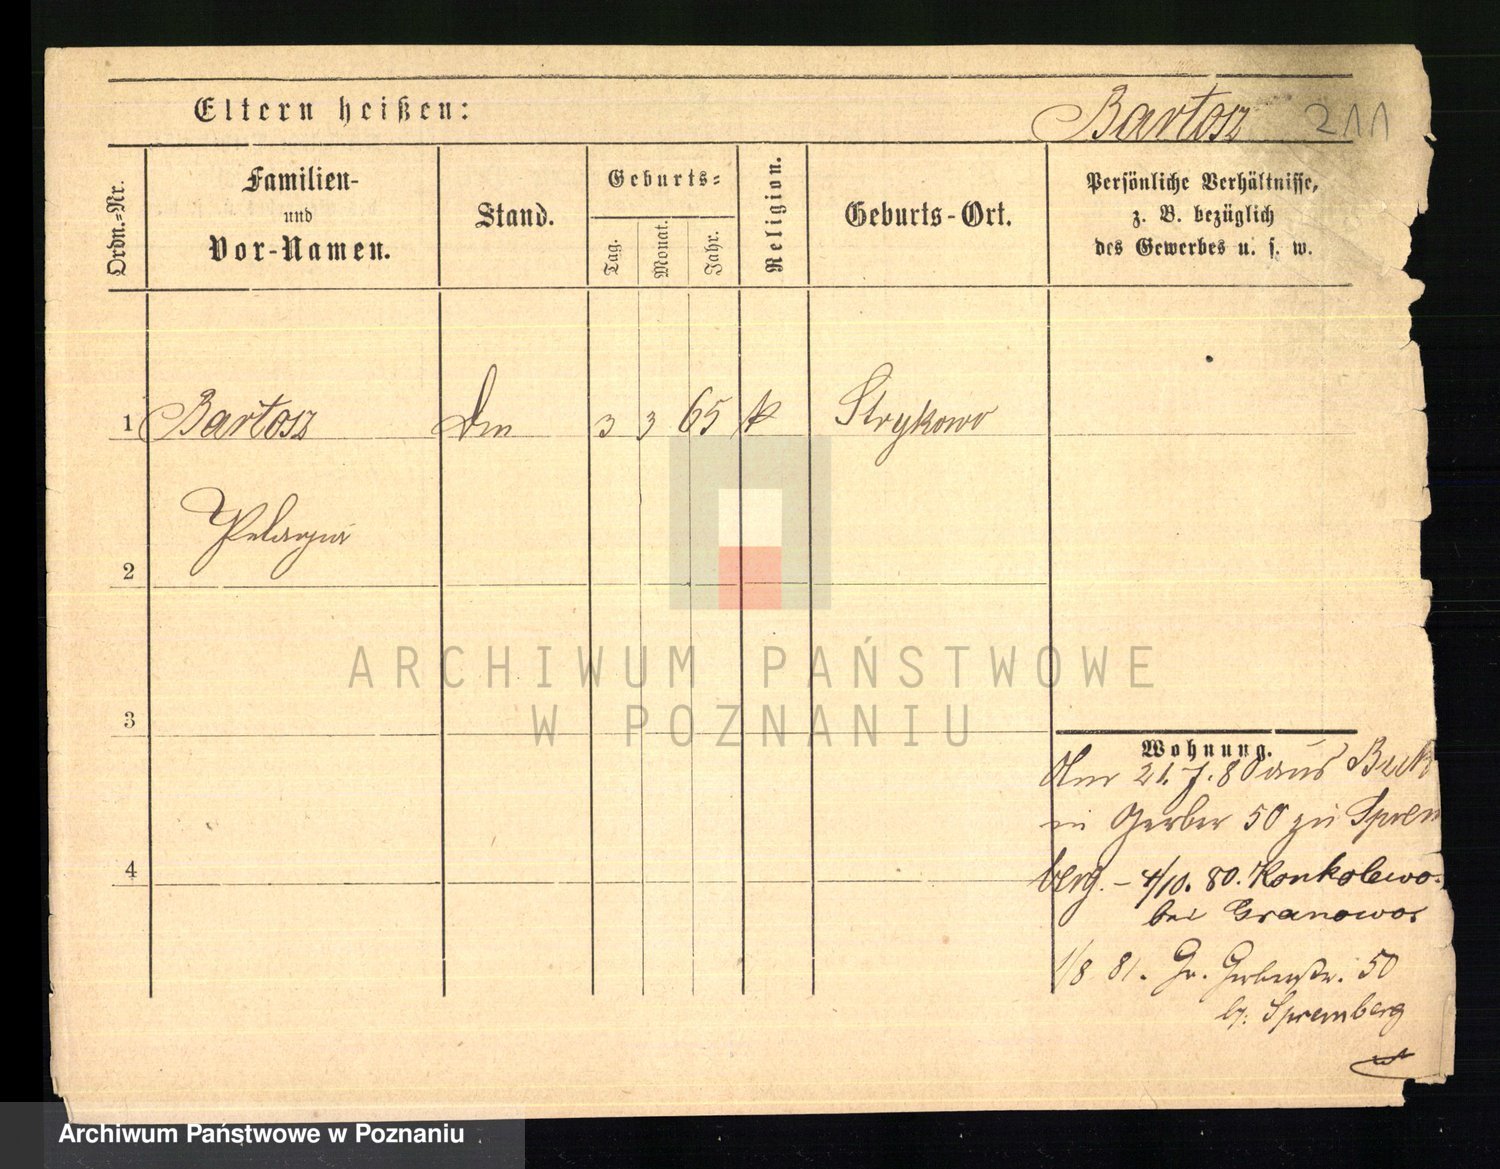 Eltern heißen:
Bartosz 211
Ordn.-Nr.
Familien-
und
Vor-Namen.
Stand.
Geburts-
Tag.
Monat.
Jahr.
Religion.
Geburts-Ort.
Persönliche Verhältnisse,
z. B. bezüglich
des Gewerbes u. s. w.
1 Bartosz 3 3 65 k Strykowo
Pelagia
2
3
4
Wohnung.
21. 7. 80 aus Buk
in Gerber 50 zu Sprem
berg. – 4/10. 80. Konkolewo.
bei Granowo.
1/8 81. Gr. Gerberstr. 50
b. Spremberg
ARCHIWUM PAŃSTWOWE
W POZNANIU
Archiwum Państwowe w Poznaniu